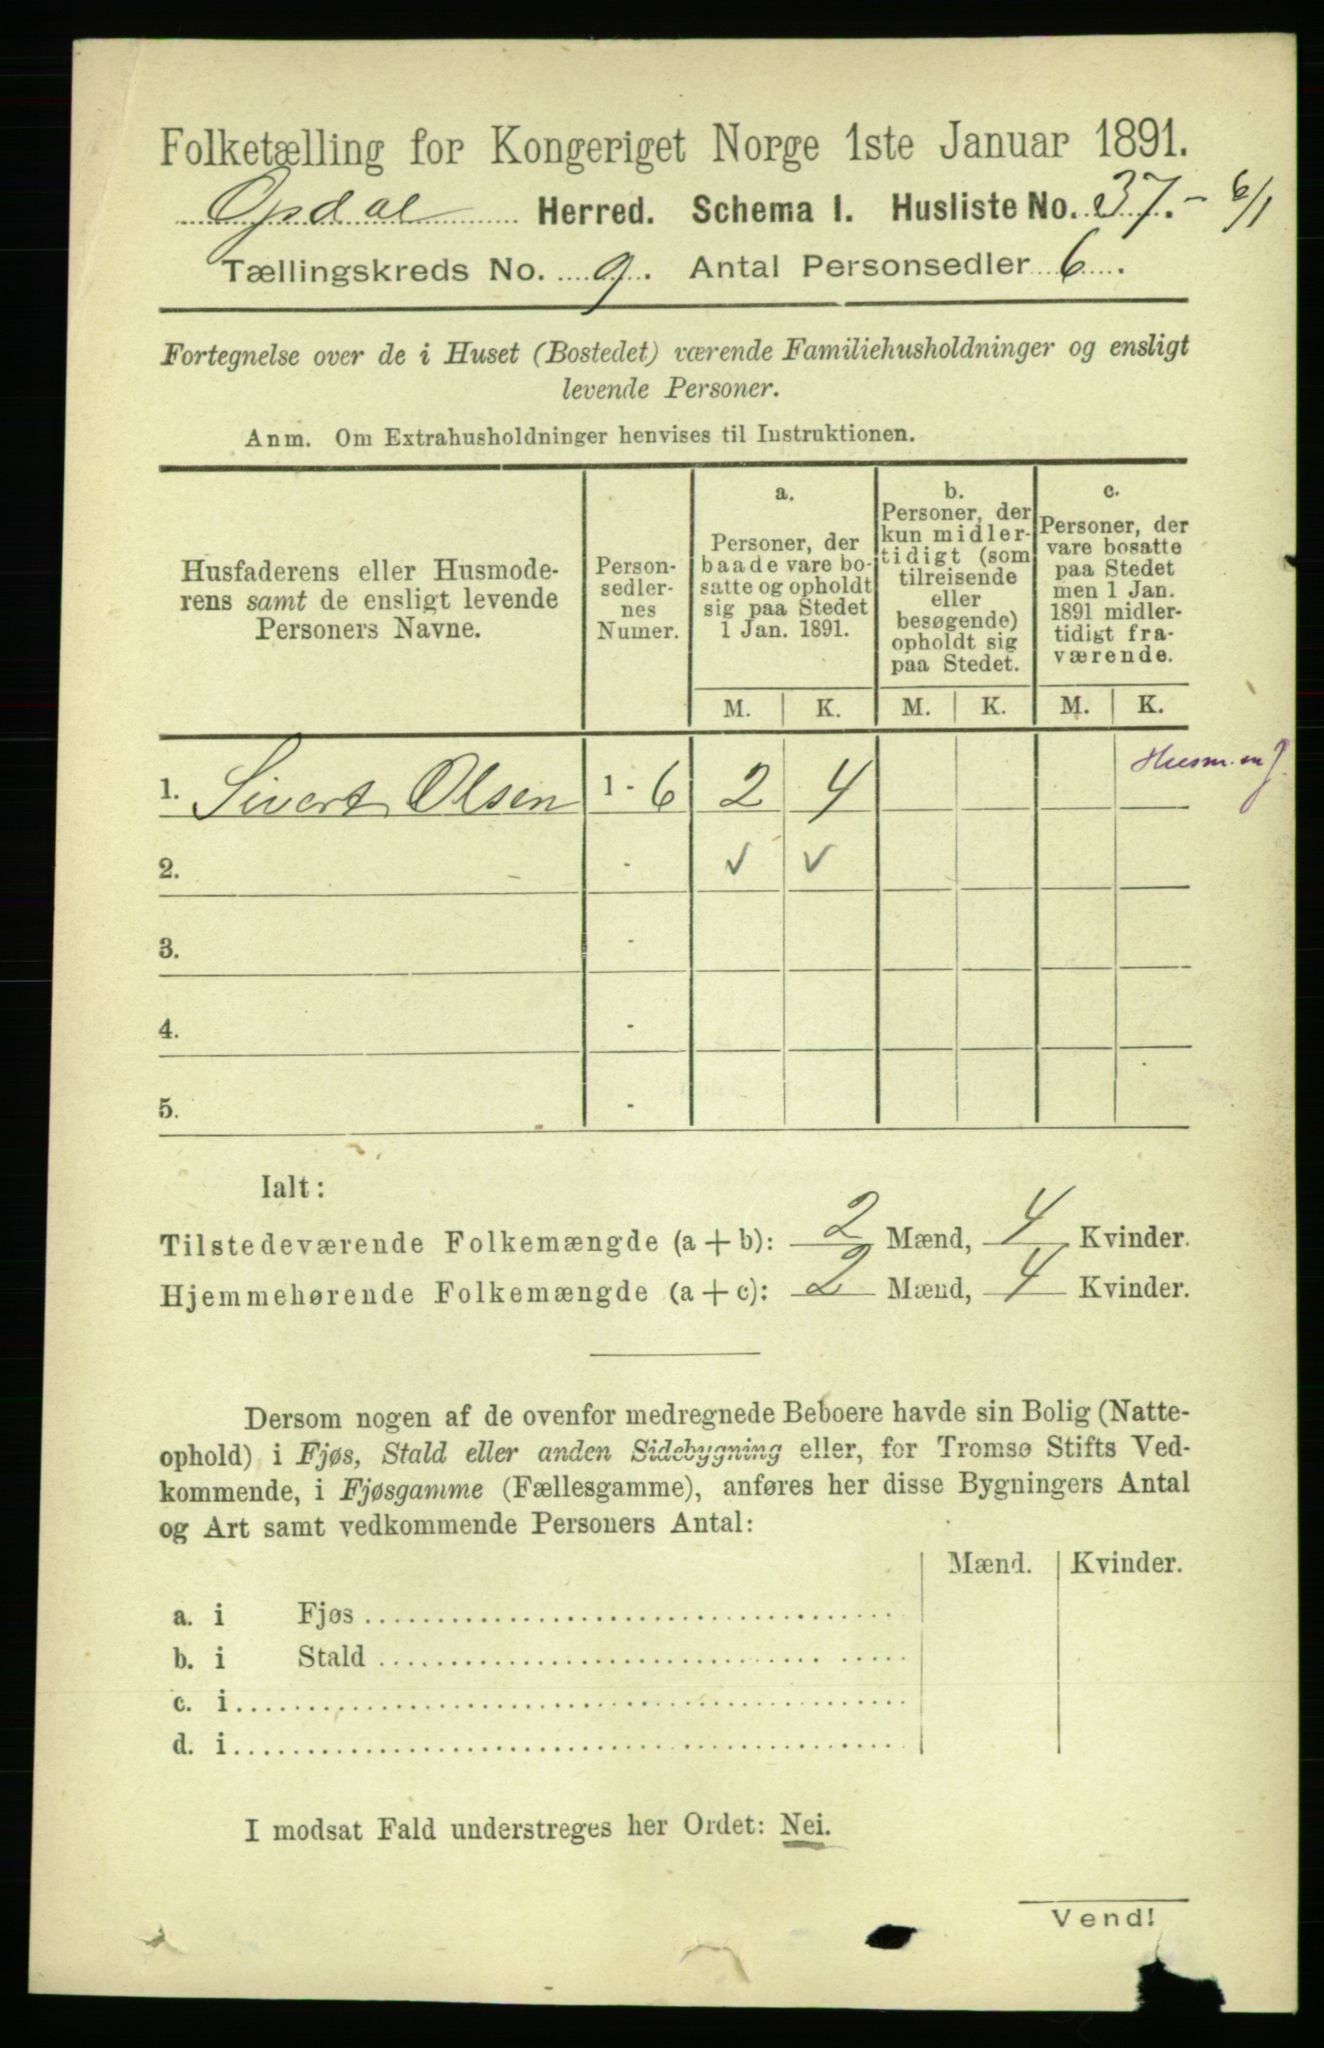 Folketælling for Kongeriget Norge 1ste Januar 1891.
Opdal Herred. Schema I. Husliste No. 37.- 6/1
Tællingskreds No. 9. Antal Personsedler 6.
Fortegnelse over de i Huset (Bostedet) værende Familiehusholdninger og ensligt
levende Personer.
Anm. Om Extrahusholdninger henvises til Instruktionen.
Husfaderens eller Husmode-
rens samt de ensligt levende
Personers Navne.
Person-
sedler-
nes
Numer.
a.
Personer, der
baade vare bo-
satte og opholdt
sig paa Stedet
1 Jan. 1891.
b.
Personer, der
kun midler-
tidigt (som
tilreisende
eller
besøgende)
opholdt sig
paa Stedet.
c.
Personer, der
vare bosatte
paa Stedet
men 1 Jan.
1891 midler-
tidigt fra-
værende.
M. K. M. K. M. K.
1. Sivert Olsen 1 - 6 2 4
Husm. m J.
2. - ✓ ✓
3. -
4. -
5. -
Ialt:
Tilstedeværende Folkemængde (a + b): 2 Mænd, 4 Kvinder.
Hjemmehørende Folkemængde (a + c): 2 Mænd, 4 Kvinder.
Dersom nogen af de ovenfor medregnede Beboere havde sin Bolig (Natte-
ophold) i Fjøs, Stald eller anden Sidebygning eller, for Tromsø Stifts Ved-
kommende, i Fjøsgamme (Fællesgamme), anføres her disse Bygningers Antal
og Art samt vedkommende Personers Antal:
Mænd. Kvinder.
a. i Fjøs
b. i Stald
c. i
d. i
I modsat Fald understreges her Ordet: Nei.
Vend!